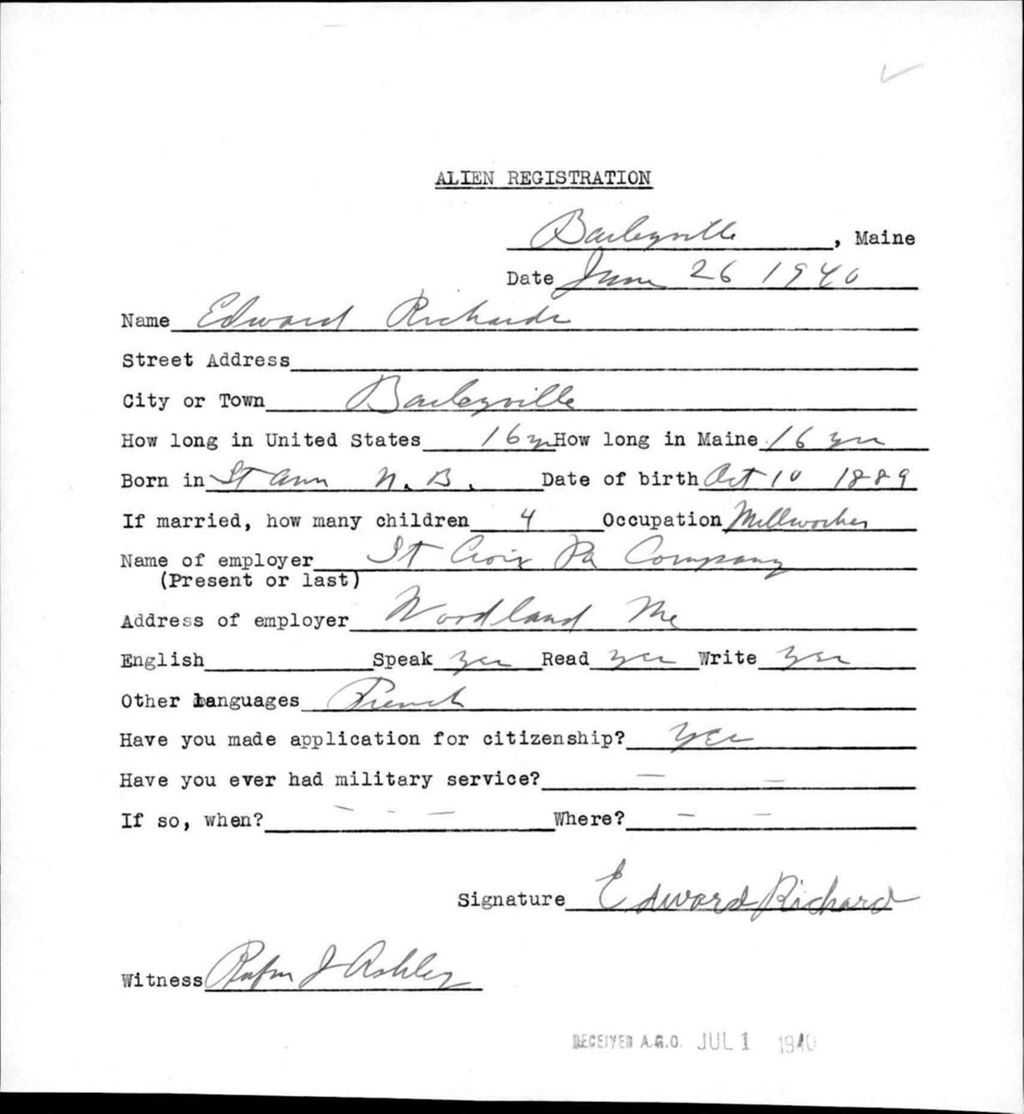 ALIEN REGISTRATION
Baileyville, Maine
Date June 26 1940
Name Edward Richards
Street Address
City or Town Baileyville
How long in United States 16 yrs How long in Maine 16 yrs
Born in St Ann N.B. Date of birth Oct 10 1889
If married, how many children 4 Occupation Millworker
Name of employer St Croix Pa Company
(Present or last)
Address of employer Woodland Me
English Speak yes Read yes Write yes
Other languages French
Have you made application for citizenship? yes
Have you ever had military service? — —
If so, when? - - — Where? — —
Signature Edward Richard
Witness J Ashley
RECEIVED A.G.O. JUL 1 1940